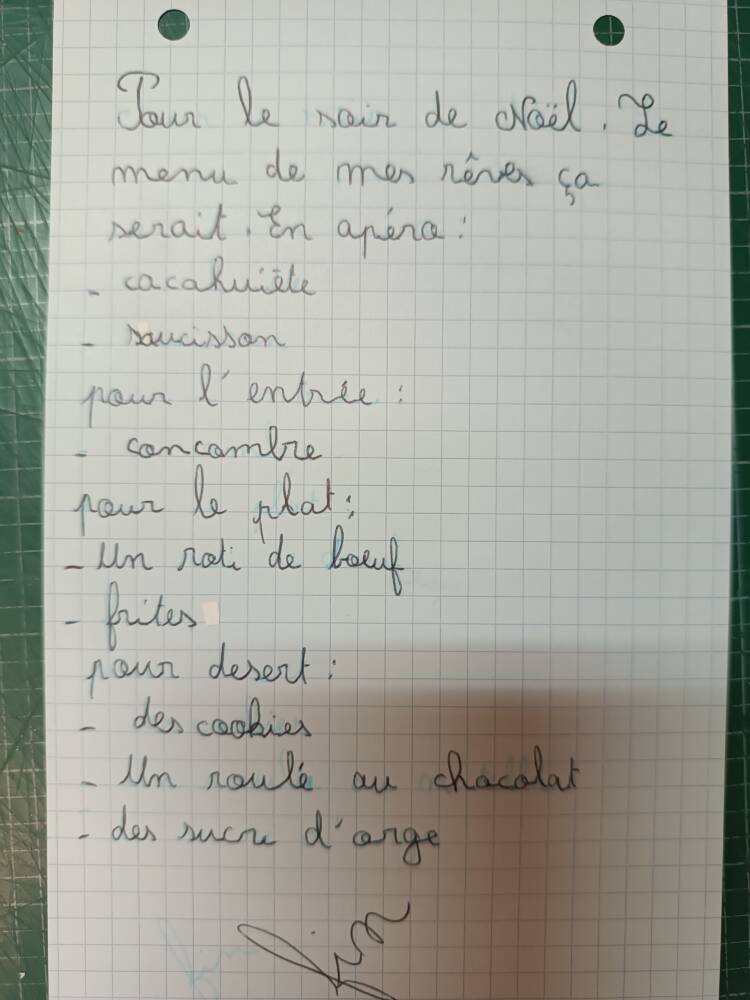 Pour le soir de Noël. Le
menu de mes rêves ça
serait. En apéro :
- cacahuiète
- saucisson
pour l'entrée :
- concombre
pour le plat :
- Un roti de boeuf
- frites
pour desert :
- des cookies
- Un roulé au chocolat
- des sucre d'orge
fin
fin